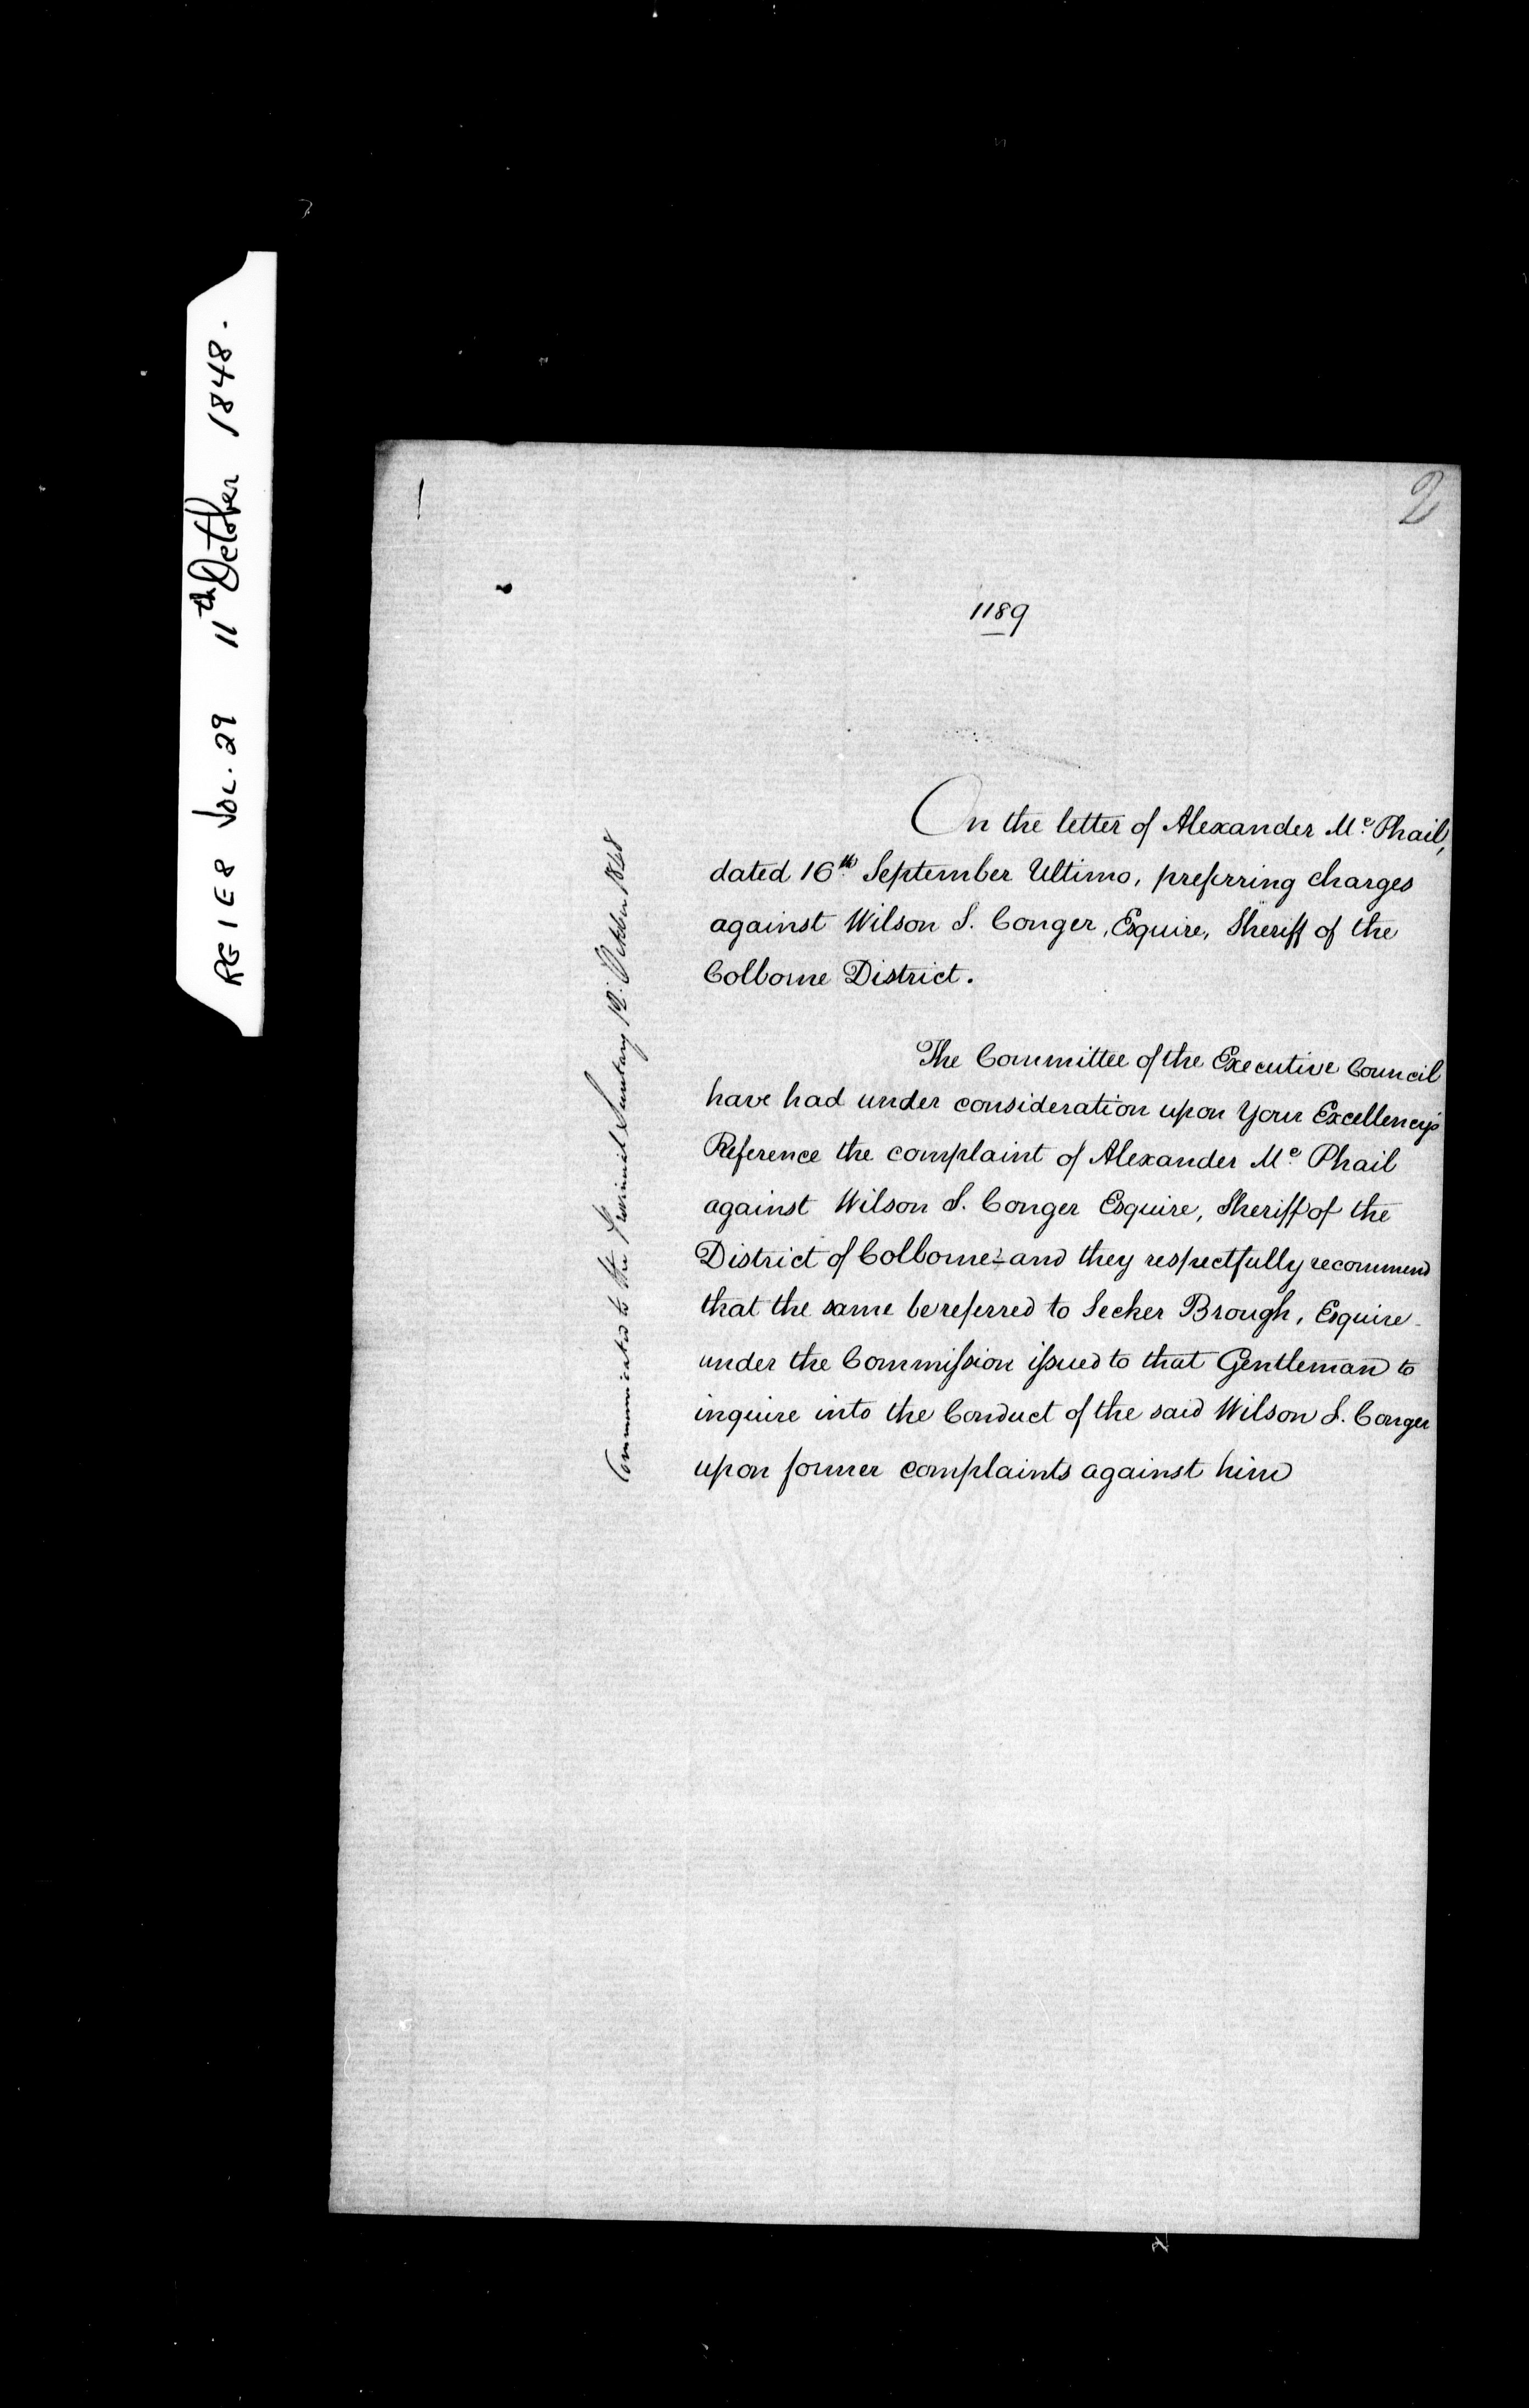 RG 1 E 8 VOL. 29 11th October 1848.
2
1189
On the letter of Alexander Mc. Phail,
dated 16th. September Ultimo, preferring charges
against Wilson S. Conger, Esquire, Sheriff of the
Colborne District.
The Committee of the Executive Council
have had under consideration upon Your Excellency's
Reference the complaint of Alexander Mc. Phail
against Wilson S. Conger Esquire, Sheriff of the
District of Colborne:- and they respectfully recommend
that the same be referred to Secker Brough, Esquire
under the Commission issued to that Gentleman to
inquire into the Conduct of the said Wilson S. Conger
upon former complaints against him
Communicated to the Provincial Secretary 12. October 1848